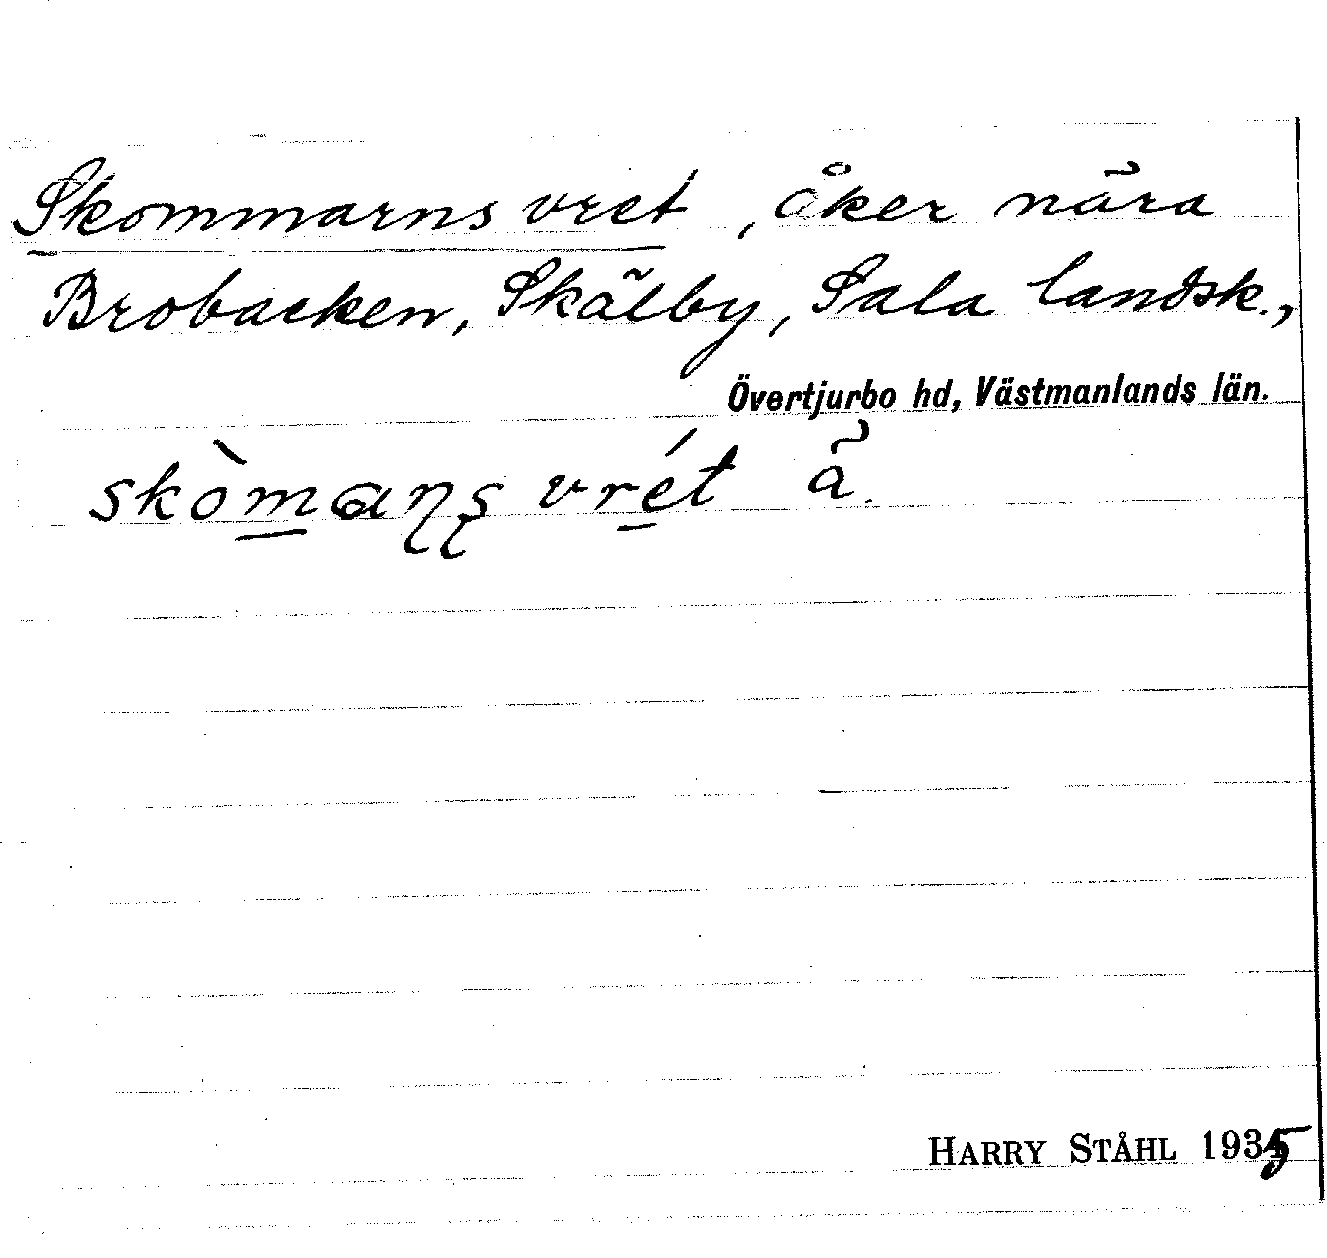 Skommarns vret, åker nära
Brobacken, Skälby, Sala landsk.,
Övertjurbo hd, Västmanlands län.
skòmaɳʂ vrét ä.
HARRY STÅHL 1935